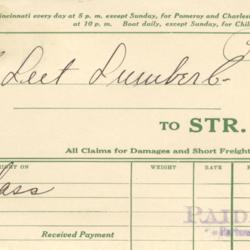 incinnati every day at 5 p. m. except Sunday, for Pomeroy and Charles
at 10 p. m. Boat daily, except Sunday, for Chil
Leet Lumber Co
TO STR.
All Claims for Damages and Short Freight
IGHT ON WEIGHT RA
lass
PAID
Received Payment